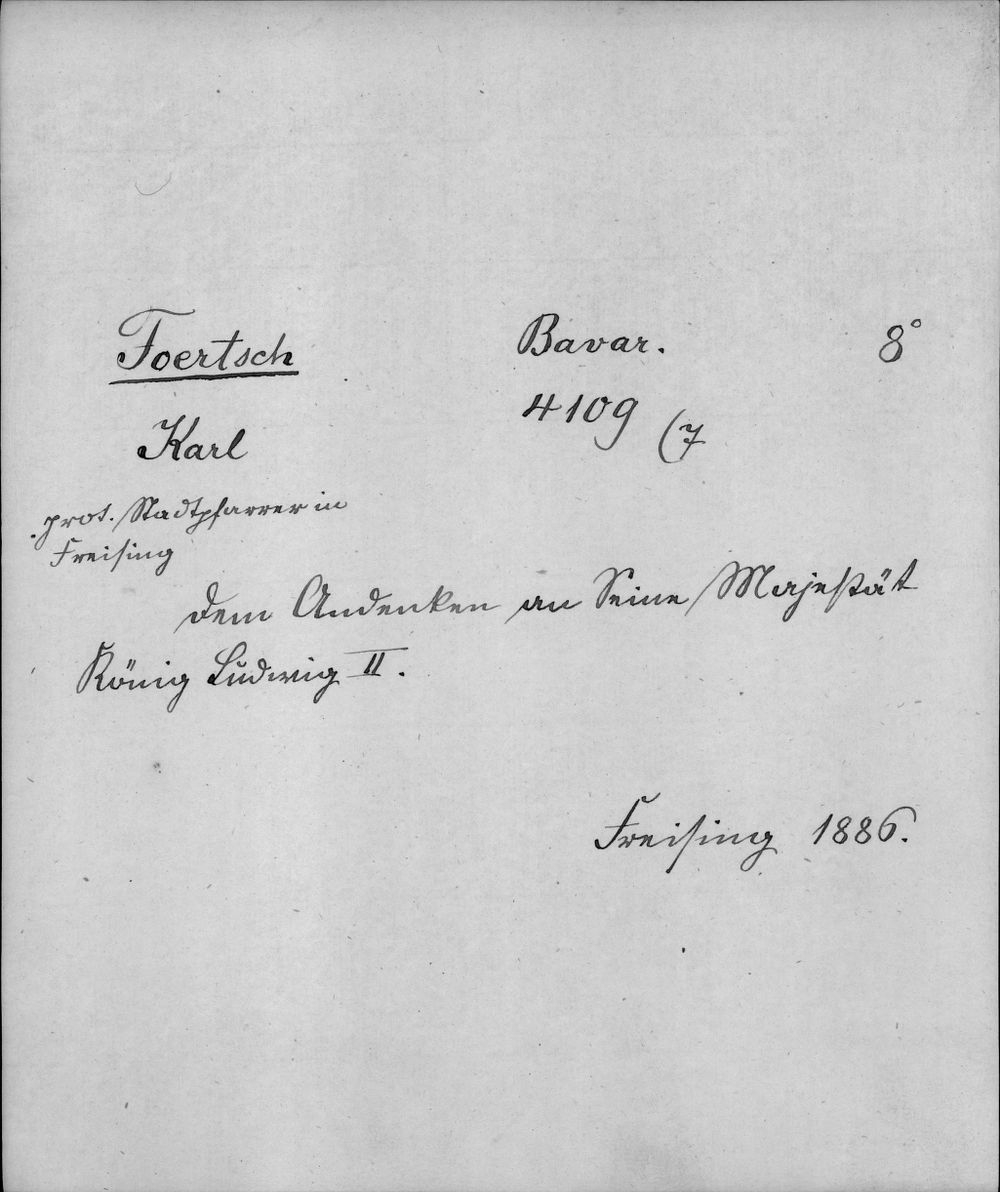 Foertsch
Bavar.
8°
4109 (7
Karl
prot. Stadtpfarrer in
Freising
Dem Andenken an Seine Majestät
König Ludwig II.
Freising 1886.